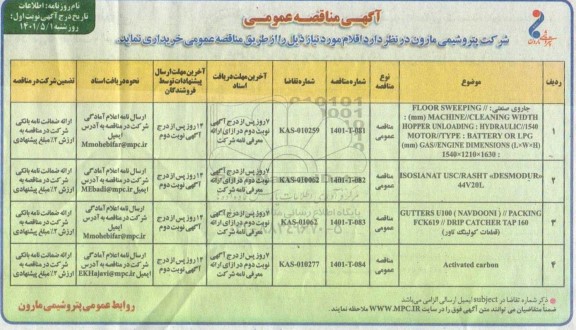 نام روزنامه: اطلاعات
تاریخ درج آگهی نوبت اول:
روز شنبه ۱۴۰۱/۵/۱
آگهی مناقصه عمومی
شرکت پتروشیمی مارون در نظر دارد اقلام مورد نیاز ذیل را از طریق مناقصه عمومی خریداری نماید.
ردیف
موضوع
نوع مناقصه
شماره مناقصه
شماره تقاضا
آخرین مهلت دریافت اسناد
آخرین مهلت ارسال پیشنهادات توسط فروشندگان
نحوه دریافت اسناد
تضمین شرکت در مناقصه
۱
جاروی صنعتی: // FLOOR SWEEPING
MACHINE//CLEANING WIDTH (mm) :
1540/HOPPER UNLOADING : HYDRAULIC//
MOTOR//TYPE : BATTERY OR LPG
GAS/ENGINE DIMENSIONS (L×W×H) (mm)
: 1630×1210×1540
مناقصه عمومی
1401-T-081
KAS-010259
۷ روز پس از درج آگهی نوبت دوم در ازای ارائه معرفی نامه شرکت
۱۴ روز پس از درج آگهی نوبت دوم
ارسال نامه اعلام آمادگی شرکت در مناقصه به آدرس ایمیل
Mmohebifar@mpc.ir
ارائه ضمانت نامه بانکی شرکت در مناقصه به ارزش ۲٪ مبلغ پیشنهادی
۲
ISOSIANAT USC/RASHT «DESMODUR»
44V20L
مناقصه عمومی
1401-T-082
KAS-010062
۷ روز پس از درج آگهی نوبت دوم در ازای ارائه معرفی نامه شرکت
۱۴ روز پس از درج آگهی نوبت دوم
ارسال نامه اعلام آمادگی شرکت در مناقصه به آدرس ایمیل
MEbadi@mpc.ir
ارائه ضمانت نامه بانکی شرکت در مناقصه به ارزش ۲٪ مبلغ پیشنهادی
۳
GUTTERS U100 ( NAVDOONI ) // PACKING
FCK619 // DRIP CATCHER TAP 160
(قطعات کولینگ تاور)
مناقصه عمومی
1401-T-083
KAS-01062
۷ روز پس از درج آگهی نوبت دوم در ازای ارائه معرفی نامه شرکت
۱۴ روز پس از درج آگهی نوبت دوم
ارسال نامه اعلام آمادگی شرکت در مناقصه به آدرس ایمیل
Mmohebifar@mpc.ir
ارائه ضمانت نامه بانکی شرکت در مناقصه به ارزش ۲٪ مبلغ پیشنهادی
۴
Activated carbon
مناقصه عمومی
1401-T-084
KAS-010277
۷ روز پس از درج آگهی نوبت دوم در ازای ارائه معرفی نامه شرکت
۱۴ روز پس از درج آگهی نوبت دوم
ارسال نامه اعلام آمادگی شرکت در مناقصه به آدرس ایمیل
EKHajavi@mpc.ir
ارائه ضمانت نامه بانکی شرکت در مناقصه به ارزش ۲٪ مبلغ پیشنهادی
ذکر شماره تقاضا در subject ایمیل ارسالی الزامی می‌باشد
ضمناً متقاضیان می توانند متن آگهی فوق را در سایت WWW.MPC.IR ملاحظه نمایند.
روابط عمومی پتروشیمی مارون